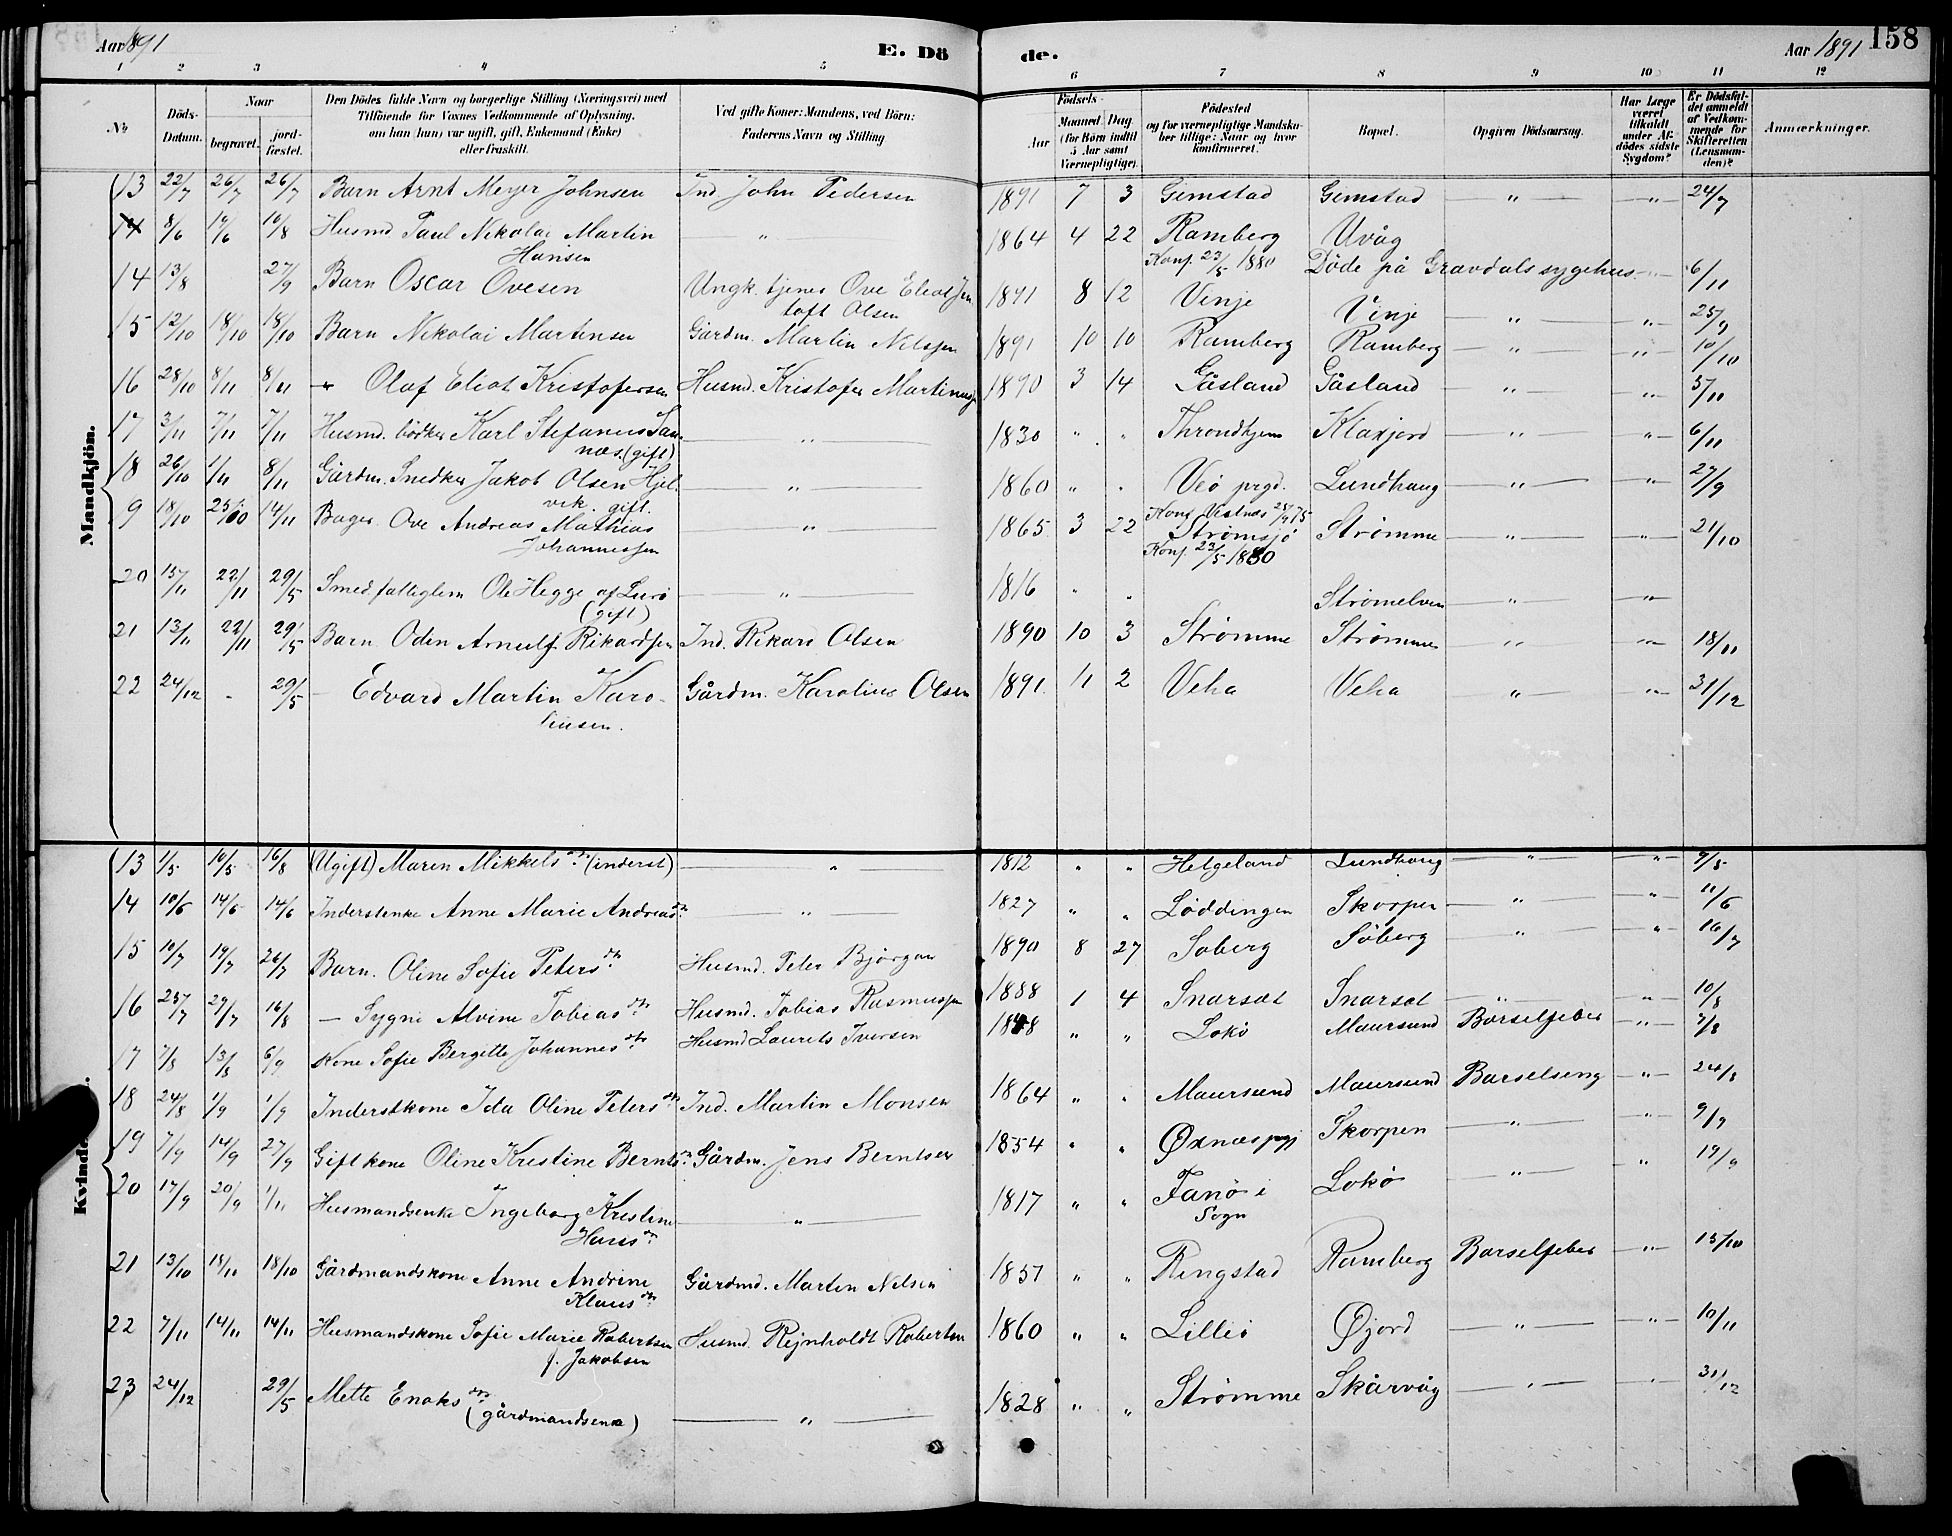 Aar 1891 E. Dö de. Aar 1891 158
1 2 3 4 5 6 7 8 9 10 11 12
No
Döds-Datum.
Naar
begravet.
jord-fæstet.
Den Dödes fulde Navn og borgerlige Stilling (Næringsvei) med
Tilföiende for Voxnes Vedkommende af Oplysning,
om han (hun) var ugift, gift, Enkemand (Enke)
eller fraskilt.
Ved gifte Koner: Mandens, ved Börn:
Faderens Navn og Stilling
Födsels-
Aar
Maaned Dag
(for Börn indtil
5 Aar samt
Værnepligtige).
Födested
og for værnepligtige Mandska-
ber tillige: Naar og hvor
konfirmeret.
Bopæl.
Opgiven Dödsaarsag.
Har Læge
været
tilkaldt
under Af-
dödes sidste
Sygdom?
Er Dödsfal-
det anmeldt
af Vedkom-
mende for
Skifteretten
(Lensman-
den)?
Anmærkninger.
Mandkjön.
13 22/7 26/7 26/7 Barn Arnt Meyer Johnsen Ind. John Pedersen 1891 7 3 Gimstad Gimstad " " 24/7
14 8/6 14/6 10/8 Husmd Paul Nikolai Martin " 1864 4 22 Ramberg Uvåg
Hansen Konf. 23/5 1880 Döde på Gravdals sygehus " 6/11
14 13/8 27/9 Barn Oscar Ovesen Ungk. tjener Ove Eliot Jen 1891 8 12 Vinje Vinje " " 25/9
toft Olsen
15 12/10 18/10 18/10 Barn Nikolai Martinsen Gårdm. Martin Nilssen 1891 10 10 Ramberg Ramberg " " 10/10
16 28/10 8/11 8/11 " Olaf Eliot Kristofersen Husmd. Kristofer Martinuss 1890 3 14 Gåsland Gåsland " " 5/11
17 3/11 7/11 7/11 Husmd. bödker Karl Stefanus San- " 1830 " " Throndhjem Klaxjord " " 6/11
næs. (gift)
18 26/10 1/11 8/11 Gårdm. Snedker Jakob Olsen Hjel- " 1860 " " Veö prgd. Lundhaug " " 27/9
vik. gift. Konf. Vestnæs 75
9 18/10 25/10 14/11 Bager. Ove Andreas Mathias " 1865 3 22 Strømsjö Strømme " " 21/10
Johannessen Konf. 23/5 1880
20 15/11 22/11 29/5 Smed fattiglem Ole Hegge af Lurö " 1816 " " Strømelven " "
(gift)
21 13/11 22/11 29/5 Barn Oden Arnulf Rikardsen Ind. Rikard Olsen 1890 10 3 Strømme Strømme " " 18/11
22 24/12 - 29/5 - Edvard Martin Karo- Gårdm. Karolius Olsen 1891 11 2 Veha Veha " " 31/12
liusen.
13 1/5 10/5 16/8 (Ugift) Maren Mikkelsdtr (inderst) " 1812 " " Helgeland Lundhaug " " 9/5
14 10/6 14/6 14/6 Inderstenke Anne Marie Andreasdtr " 1827 " " Löddingen Skorpen " " 11/6
15 10/7 19/7 26/7 Barn. Oline Sofie Petersdtr Husmd. Peter Björgan 1890 8 27 Söberg Söberg " " 16/7
16 25/7 29/7 16/8 - Sygni Alvine Tobiasdtr Husmd. Tobias Rasmussen 1888 1 4 Snarset Snarset " " 10/8
17 7/8 13/8 6/9 Kone Sofie Bergitte Johannesdtr Husmd Laurits Iversen 1848 " " Lokö Maursund Barselfeber " 7/8
18 24/8 1/9 1/9 Inderstkone Ida Oline Petersdtr Ind. Martin Monsen 1864 " " Maursund Maursund Barselseng " 24/8
19 7/9 14/9 27/9 Gift kone Oline Kristine Berntsdtr Gårdm. Jens Berntsen 1854 " " Øxnæs pgj Skorpen " " 9/9
20 17/9 20/9 1/11 Husmandsenke Ingeborg Kristine " 1817 " " Fanö i Lokö " " 19/9
Hansdtr Sogn
21 13/10 18/10 18/10 Gårdmandskone Anne Andrine Gårdmd. Martin Nilsen 1857 " " Ringstad Ramberg Barselfeber " 13/10
Klausdtr
22 7/11 14/11 14/11 Husmandskone Sofie Marie Robertsen Husmd. Rejnholdt Robertsen 1860 " " Lilleö Øjord " " 10/11
f. Jakobsen
23 24/12 29/5 Mette Enoksdtr " 1828 " " Strømme Skårvåg " " 31/12
(gårdmandsenke)